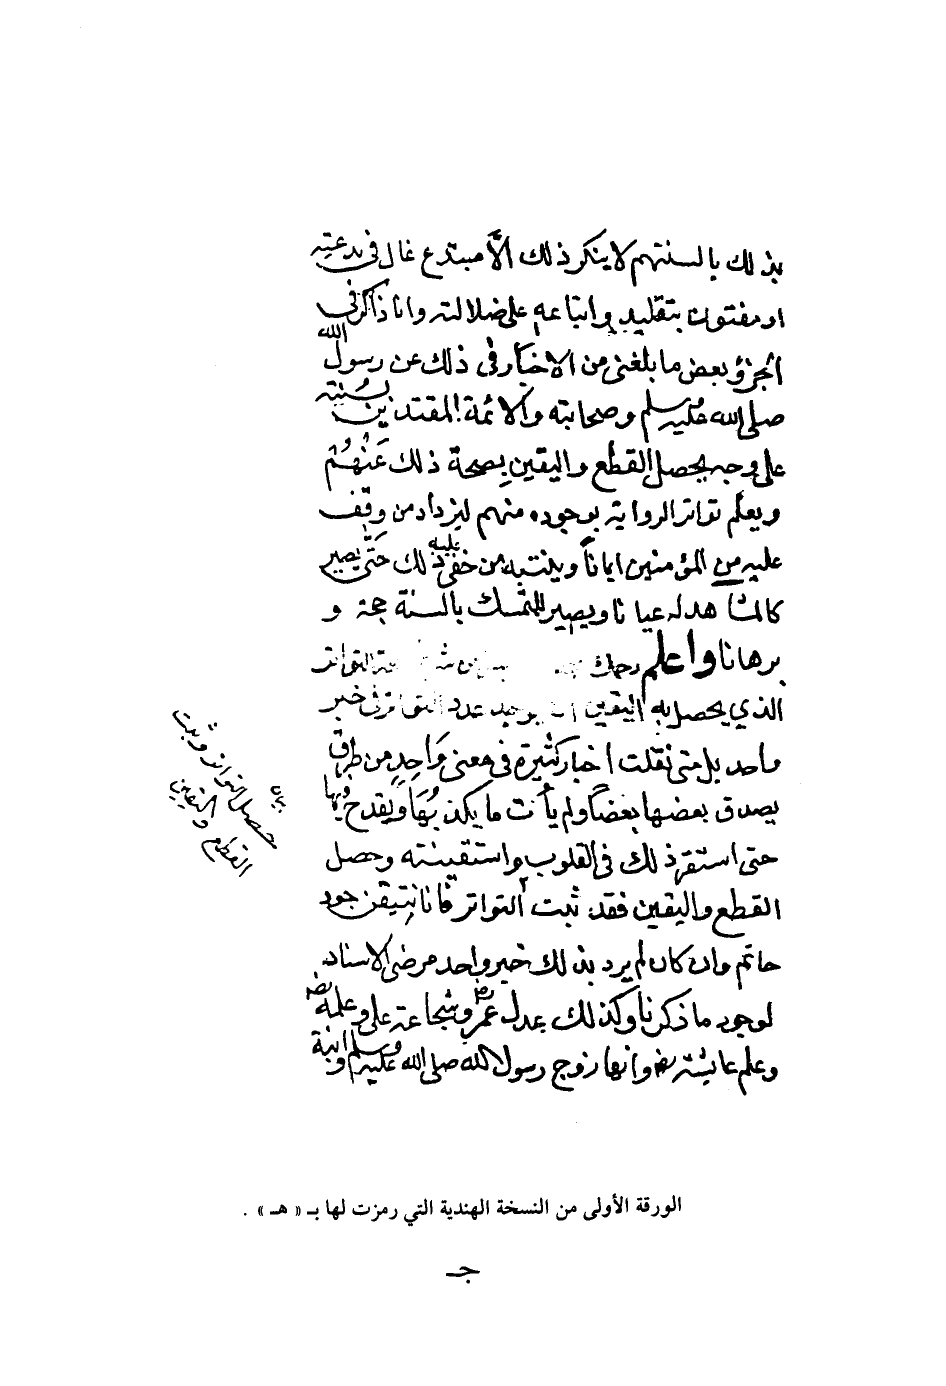 بذلك بالسنتهم لا ينكر ذلك الّا مبتدع غال في بدعته
او مفتون بتقليده واتباعه على ضلالته وانا ذاكر في
الجزؤ بعض ما بلغني من الاخبار في ذلك عن رسول الله
صلى الله عليه وسلم وصحابته والائمة المقتدين بسُنته
على وجه يحصل القطع واليقين بصحة ذلك عَنْهُمْ
ويعلم تواتر الرواية بوجوده منهم ليزداد من وقف
عليه من المؤمنين ايمانًا وينتبه من خفي عليه ذلك حَتّى يصير
كالمشاهد له عيانا ويصير للمتمسك بالسنة حجة و
برهانا واعلم رحمك التواتر
الذي يحصل به اليقين يوجد عدد التواتر في خبر
واحد بل متى نقلت اخبار كثيرة في معنى وَاحِدٍ من طرق
يصدق بعضها بعضًا ولم يأت ما يكذبُهَا ويقدح فيها
حتى استقر ذلك في القلوب واستيقنته وحصل
القطع واليقين فقد ثبت التواتر فانا نتيقن جود
حاتم وان كان لم يرد بذلك خبر واحد مرضى الاسناد
لوجود ما ذكرنا وكذلك عدل عمر وشجاعة على وعلمه
وعلم عائشة رض وانها زوج رسول الله صلى الله عليه وسلم وابنة
بيان
حصل التواتر وثبت
القطع واليقين
الورقة الأولى من النسخة الهندية التي رمزت لها بـ « هـ » .
جـ